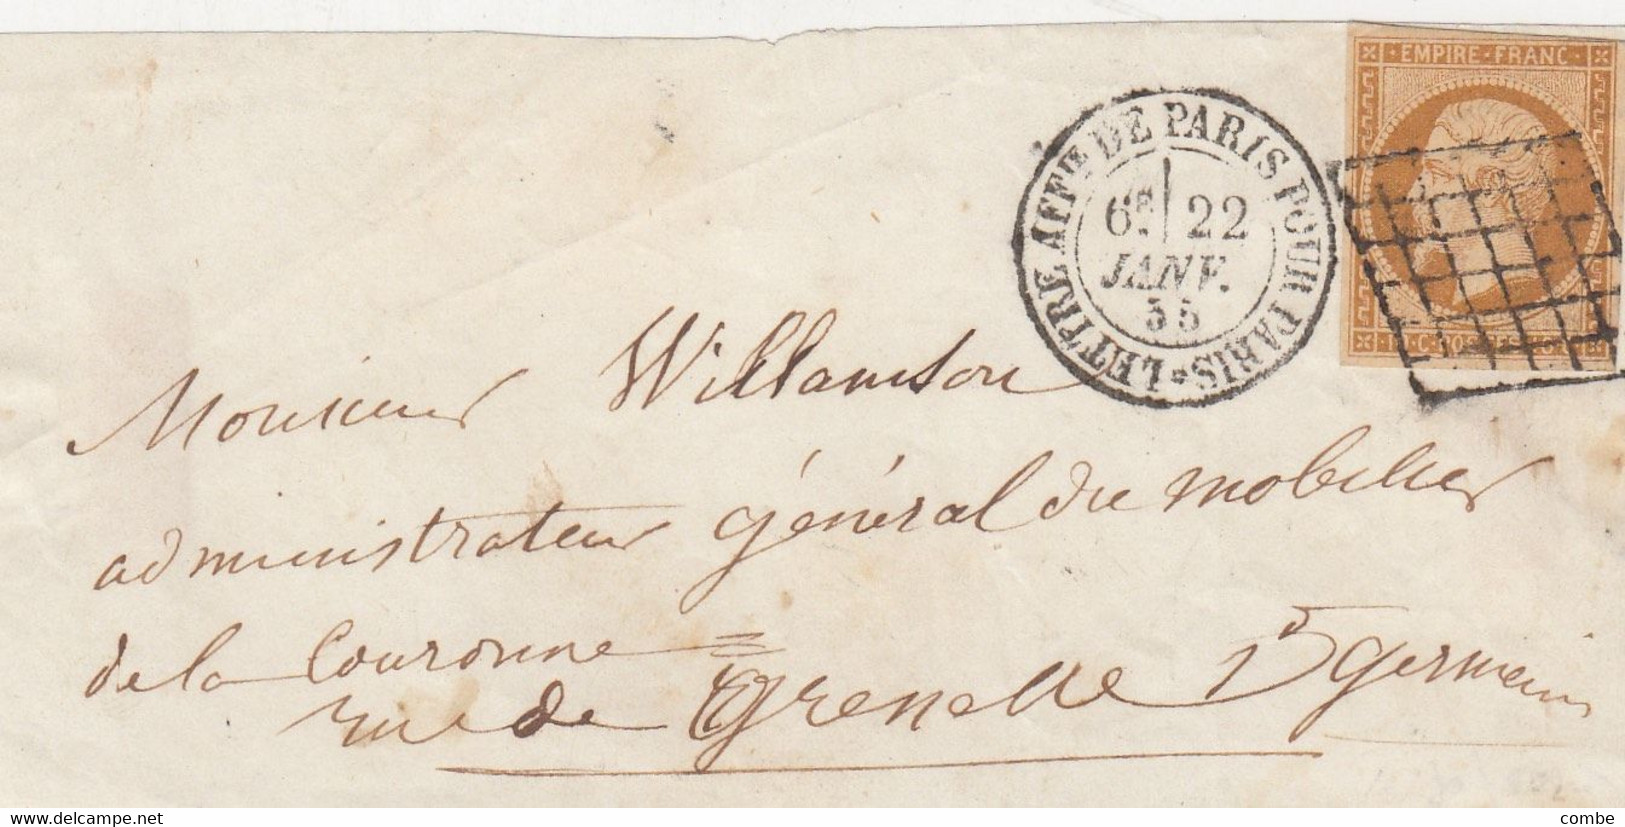 EMPIRE · FRANC ·
LETTRE AFFIE DE PARIS POUR PARIS
6E 22
JANV.
55
Monsieur Willamson
administrateur général du mobilier
de la Couronne =
rue de Grenelle St germain
delcampe.net
combe